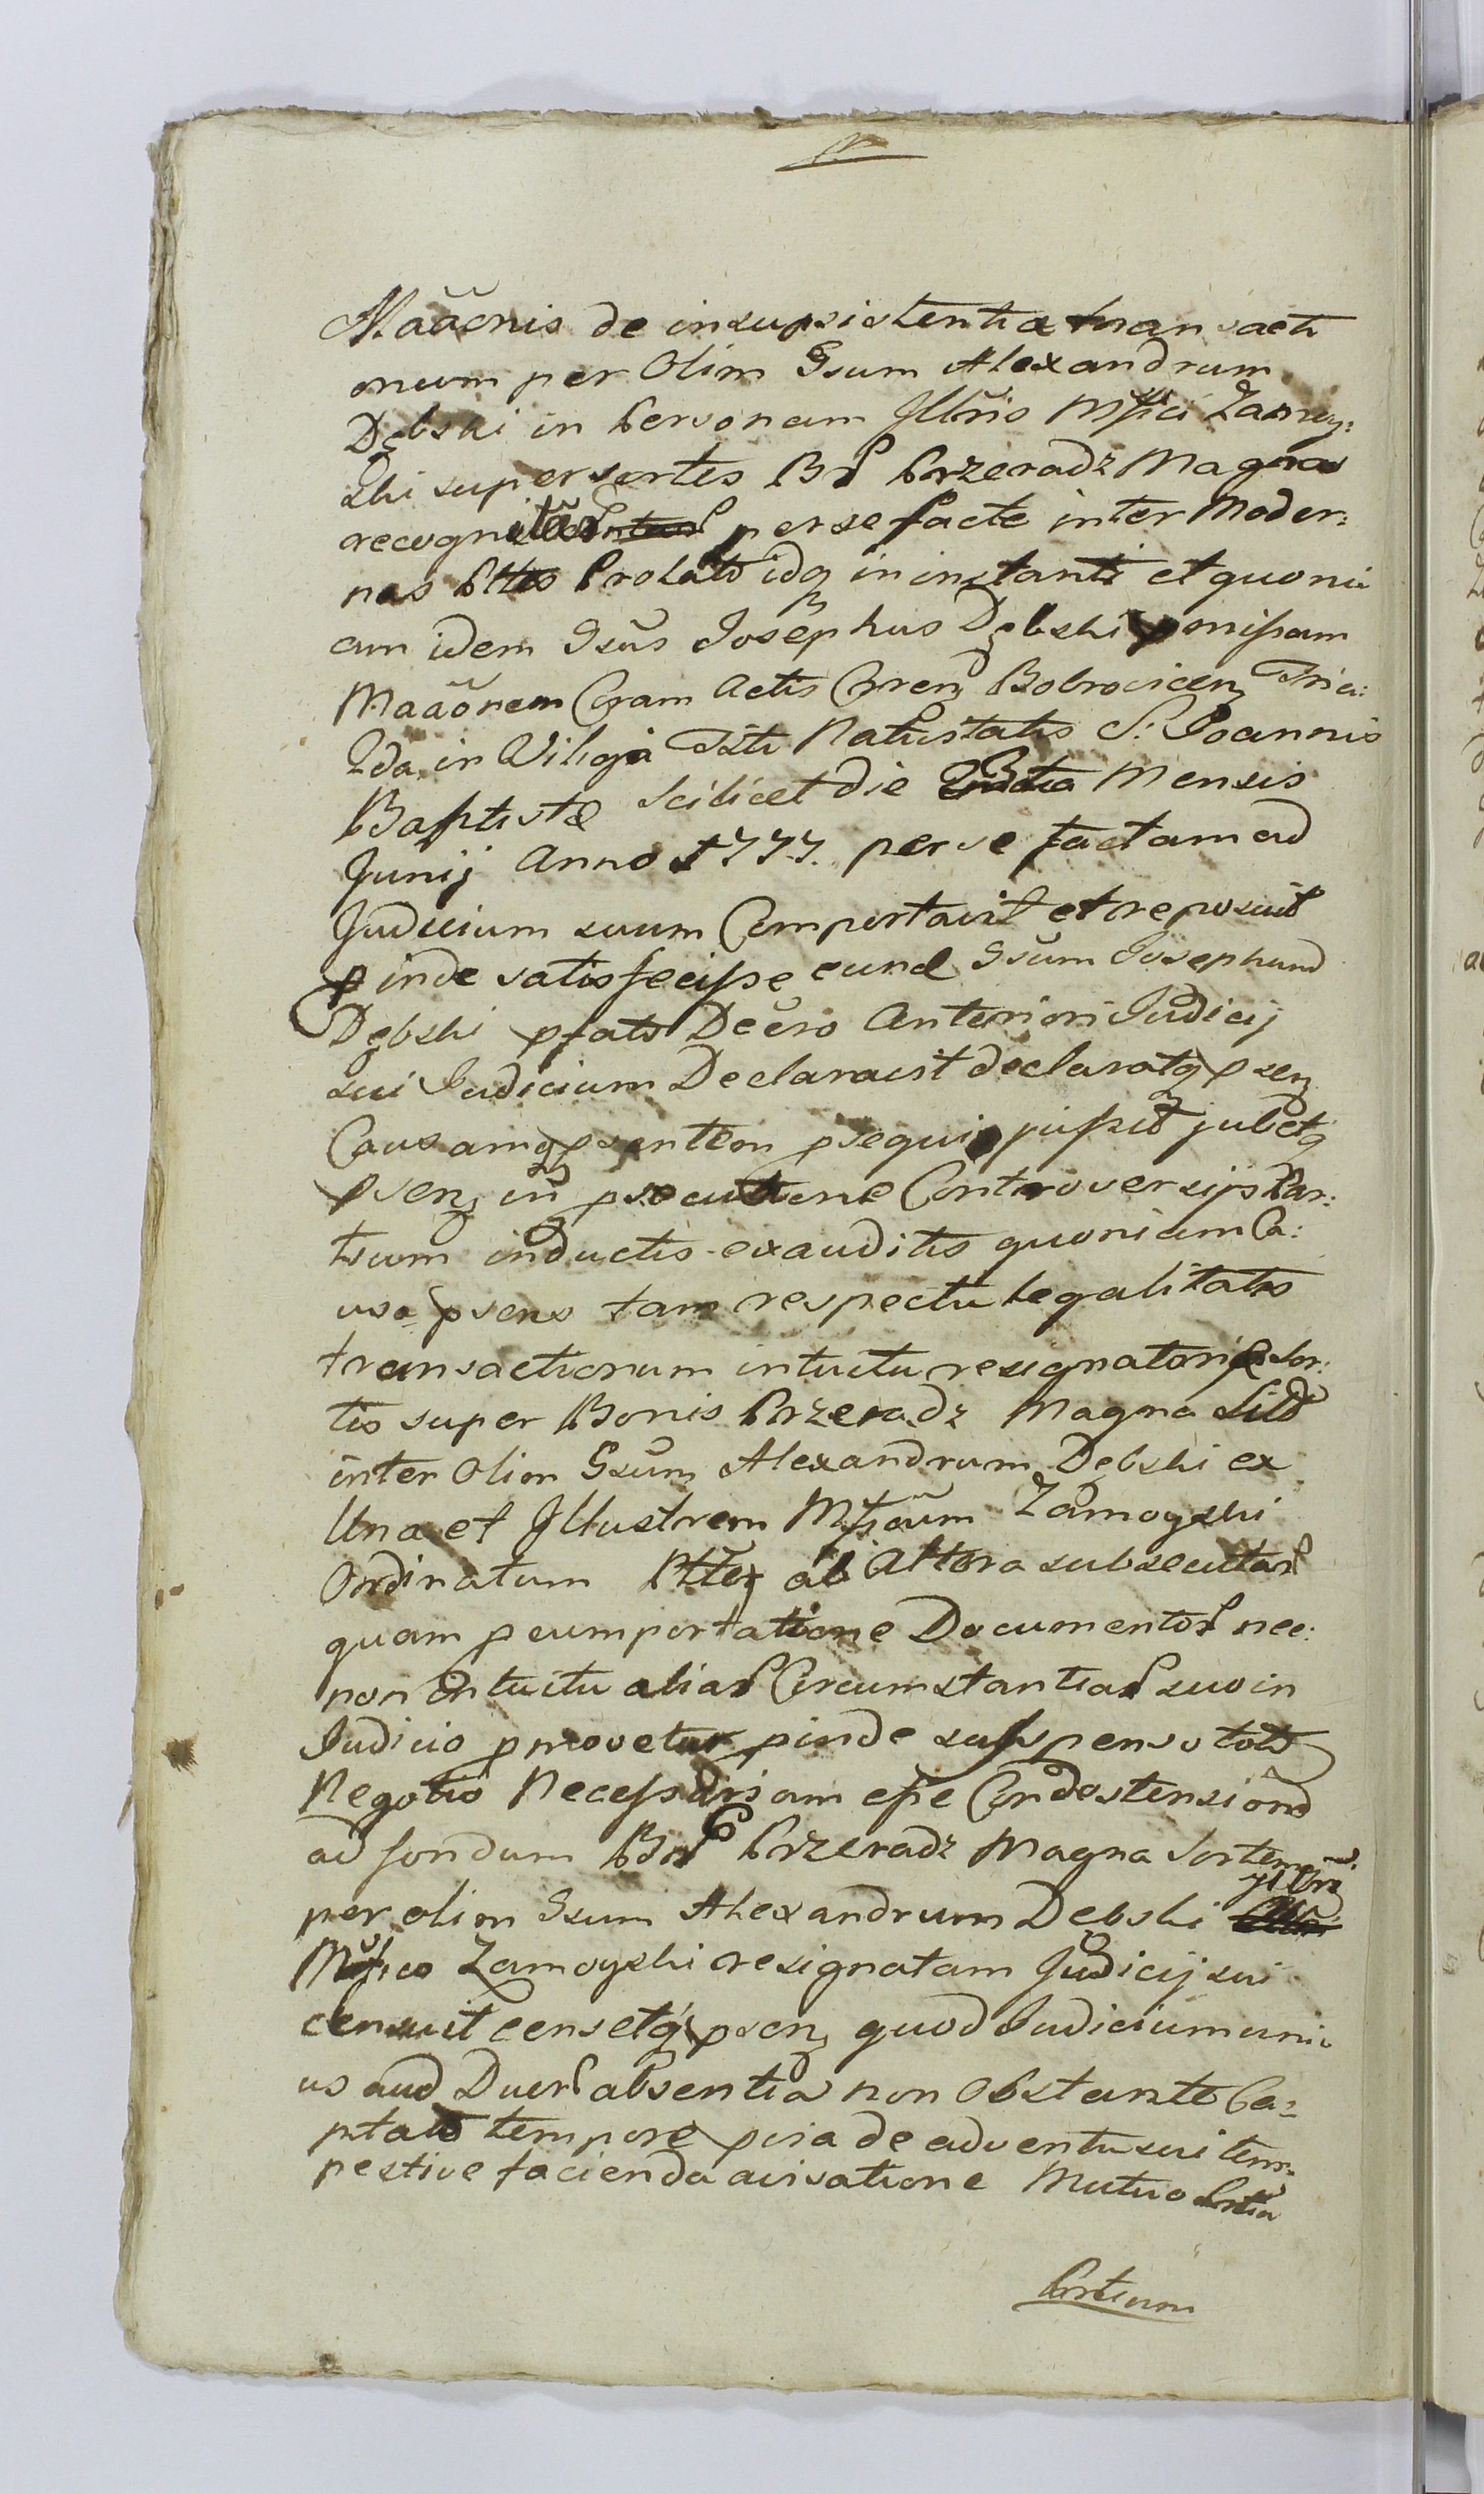 Maãonis de insupsistentia transacti
onum per Olim Gsum Alexandrum
Dębski in Personam Jllris Mfici Zamoy:
ski super sortes Br Przeradz Magna
recognitar per se facte inter Moder:
nas Pttes Prolato idq in instanti et quoni
am idem Gsus Josephus Dębski pmissam
Maãonem Coram Actis Cstren Bobrovicen Feria:
2da in Viligia Fsti Natiuitatis S: Joannis
Baptistæ scilicet die Mensis
Junij Anno 1777. per se factam ad
Judicium suum Comportavit et reposuit
pinde satisfecisse eund Gsum Josephum
Dębski pfato Decro Anteriori Judicij
sui Judicium Declaravit declaratq psen
Causamq psentem psequi jussit jubetq
psen in psecutione Controversijs Par:
tium inductis exauditis quoniam Ca:
usa psens tam respectu legalitatis
transactionum intuitu resignatoriæ Sor:
tis super Bonis Przeradz Magna Sitt
inter Olim Gsum Alexandrum Dębski ex
Una et Jllustrem Mficum Zamoyski
Ordinatum Pttes ab Altera subsecutar
quam peumportatione Documentor nec:
non Intuitu aliar Circumstantiar suo in
Judicio pmovetur pinde suspenso toto
Negotio Necessariam esse Condestensionem
ad fondum Bnr Przeradz Magna Sortem
per olim Gsum Alexandrum Dębski Jllri
Mfico Zamoyski resignatam Judicij sui
censuit censetq psen quod Judicium uni
us aud Duor absentia non Obstante Ca:
ptato tempore pvia de adventu sui tem:
pestive facienda avisatione Mutuo Partium
Partium